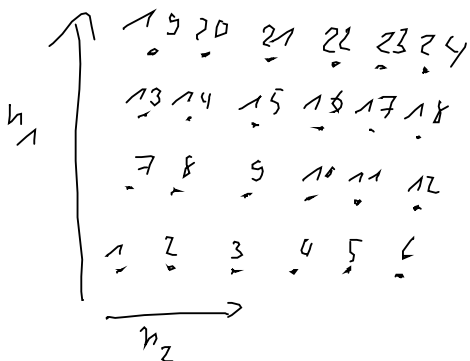 19 20 21 22 23 24
13 14 15 16 17 18
h1
7 8 9 10 11 12
1 2 3 4 5 6
h2